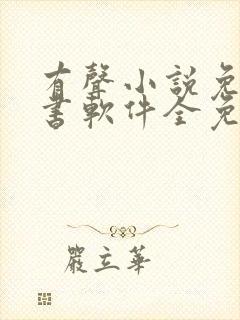 有聲小説免
書軟件全免
嚴立華